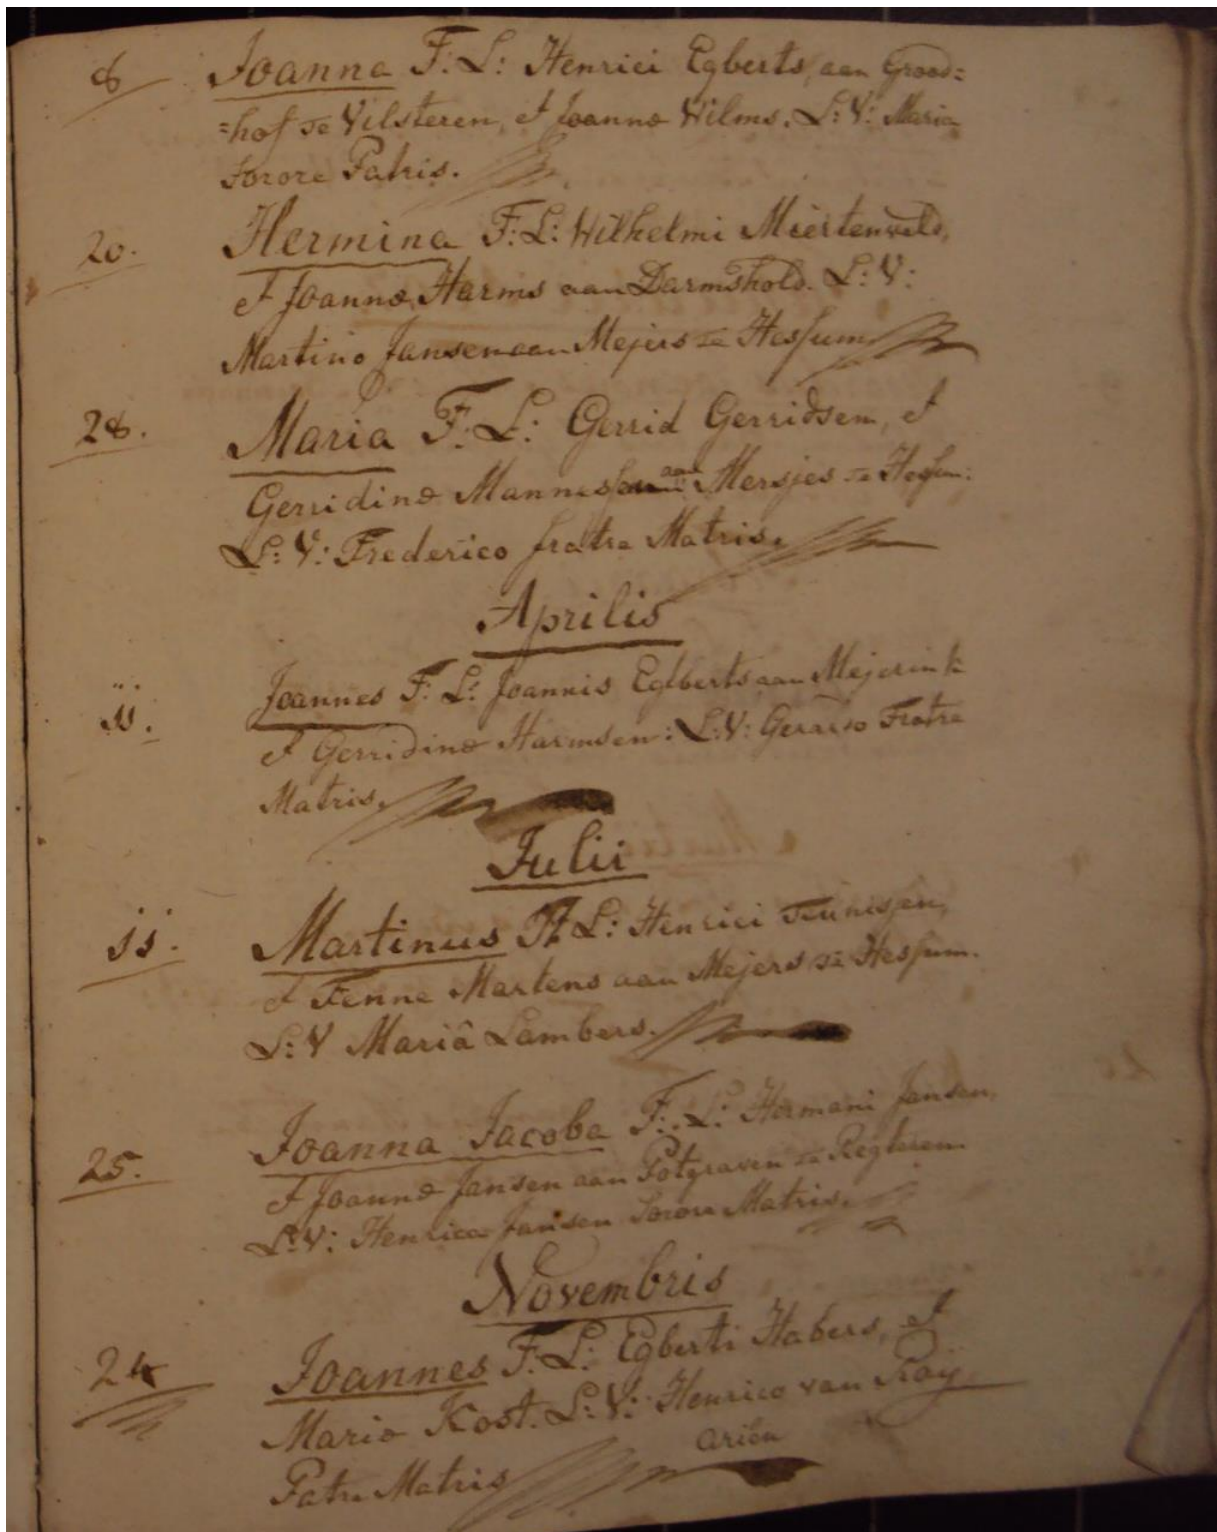 8 Joanna F: L: Henrici Egberts, aan Grood=
=hof te Vilsteren, et Joannæ Wilms. L: V: Maria
Sorore Patris.
20. Hermina F: L: Wilhelmi
et Joannæ Harms aan Darmshold. L: V:
Martino Jansen aan Mejers te Hessum
28. Maria F: L: Gerrid Gerridsen, et
Gerridinæ aan Mersjes te Hessum:
L: V: Frederico fratre Matris.
Aprilis
11. Joannes F: L: Joannis Eglberts aan Mejerink
et Gerridinæ Harmsen: L: V: Gerardo Fratre
Matris.
Julii
11. Martinus F L: Henrici Teunissen,
et Fenne Martens aan Mejers te Hessum.
L: V Mariâ Lambers.
25. Joanna Jacoba F: L: Hermani Jansen,
et Joannæ Jansen aan Potgraven te Regteren
L: V: Henrica Jansen Sorore Matris.
Novembris
24 Joannes F: L: Egberti Habers, et
Mariæ Kost. L: V: Henrico van Raij
ariën
Patre Matris